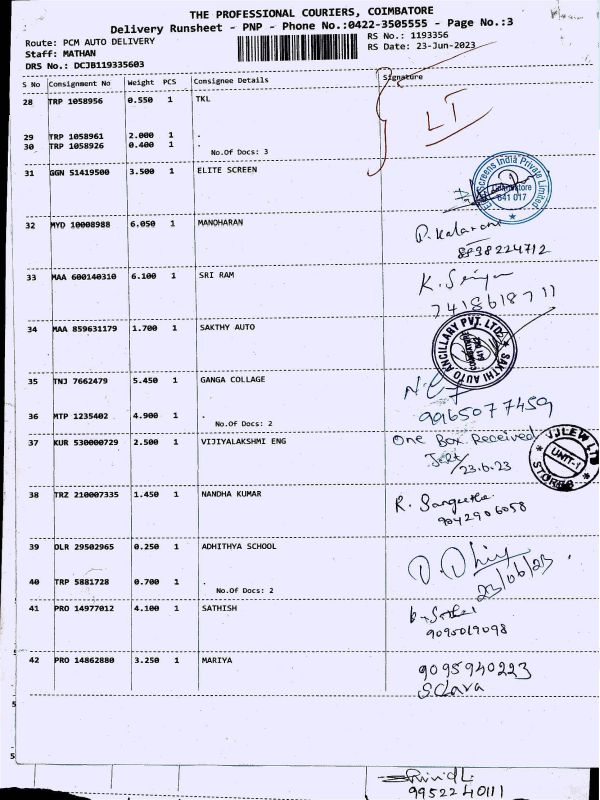 THE PROFESSIONAL COURIERS, COIMBATORE
Delivery Runsheet - PNP - Phone No.:0422-3505555 - Page No.:3
Route: PCM AUTO DELIVERY
RS No.: 1193356
Staff: MATHAN
RS Date: 23-Jun-2023
DRS No.: DCJB119335603
S No Consignment No Weight PCS Consignee Details Signature
28 TRP 1058956 0.550 1 TKL
LT
29 TRP 1058961 2.000 1 .
30 TRP 1058926 0.400 1 .
No.Of Docs: 3
31 GGN 51419500 3.500 1 ELITE SCREEN
Screens India Private Limited
Coimbatore
641 017
32 MYD 10008988 6.050 1 MANOHARAN
8838224712
33 MAA 600140310 6.100 1 SRI RAM
7418618711
34 MAA 859631179 1.700 1 SAKTHY AUTO
SAKTHI AUTO ANCILLARY PVT. LTD.
COIMBATORE
35 TNJ 7662479 5.450 1 GANGA COLLAGE
36 MTP 1235402 4.900 1 .
No.Of Docs: 2
9965077459
37 KUR 530000729 2.500 1 VIJIYALAKSHMI ENG
One Box Received
23.6.23
VJLEW LTD
UNIT-1
STORES
38 TRZ 210007335 1.450 1 NANDHA KUMAR
R. Sangeetha
9042906058
39 DLR 29502965 0.250 1 ADHITHYA SCHOOL
40 TRP 5881728 0.700 1 .
No.Of Docs: 2
23/06/23
41 PRO 14977012 4.100 1 SATHISH
9095019098
42 PRO 14862880 3.250 1 MARIYA
9095940223
9952240111